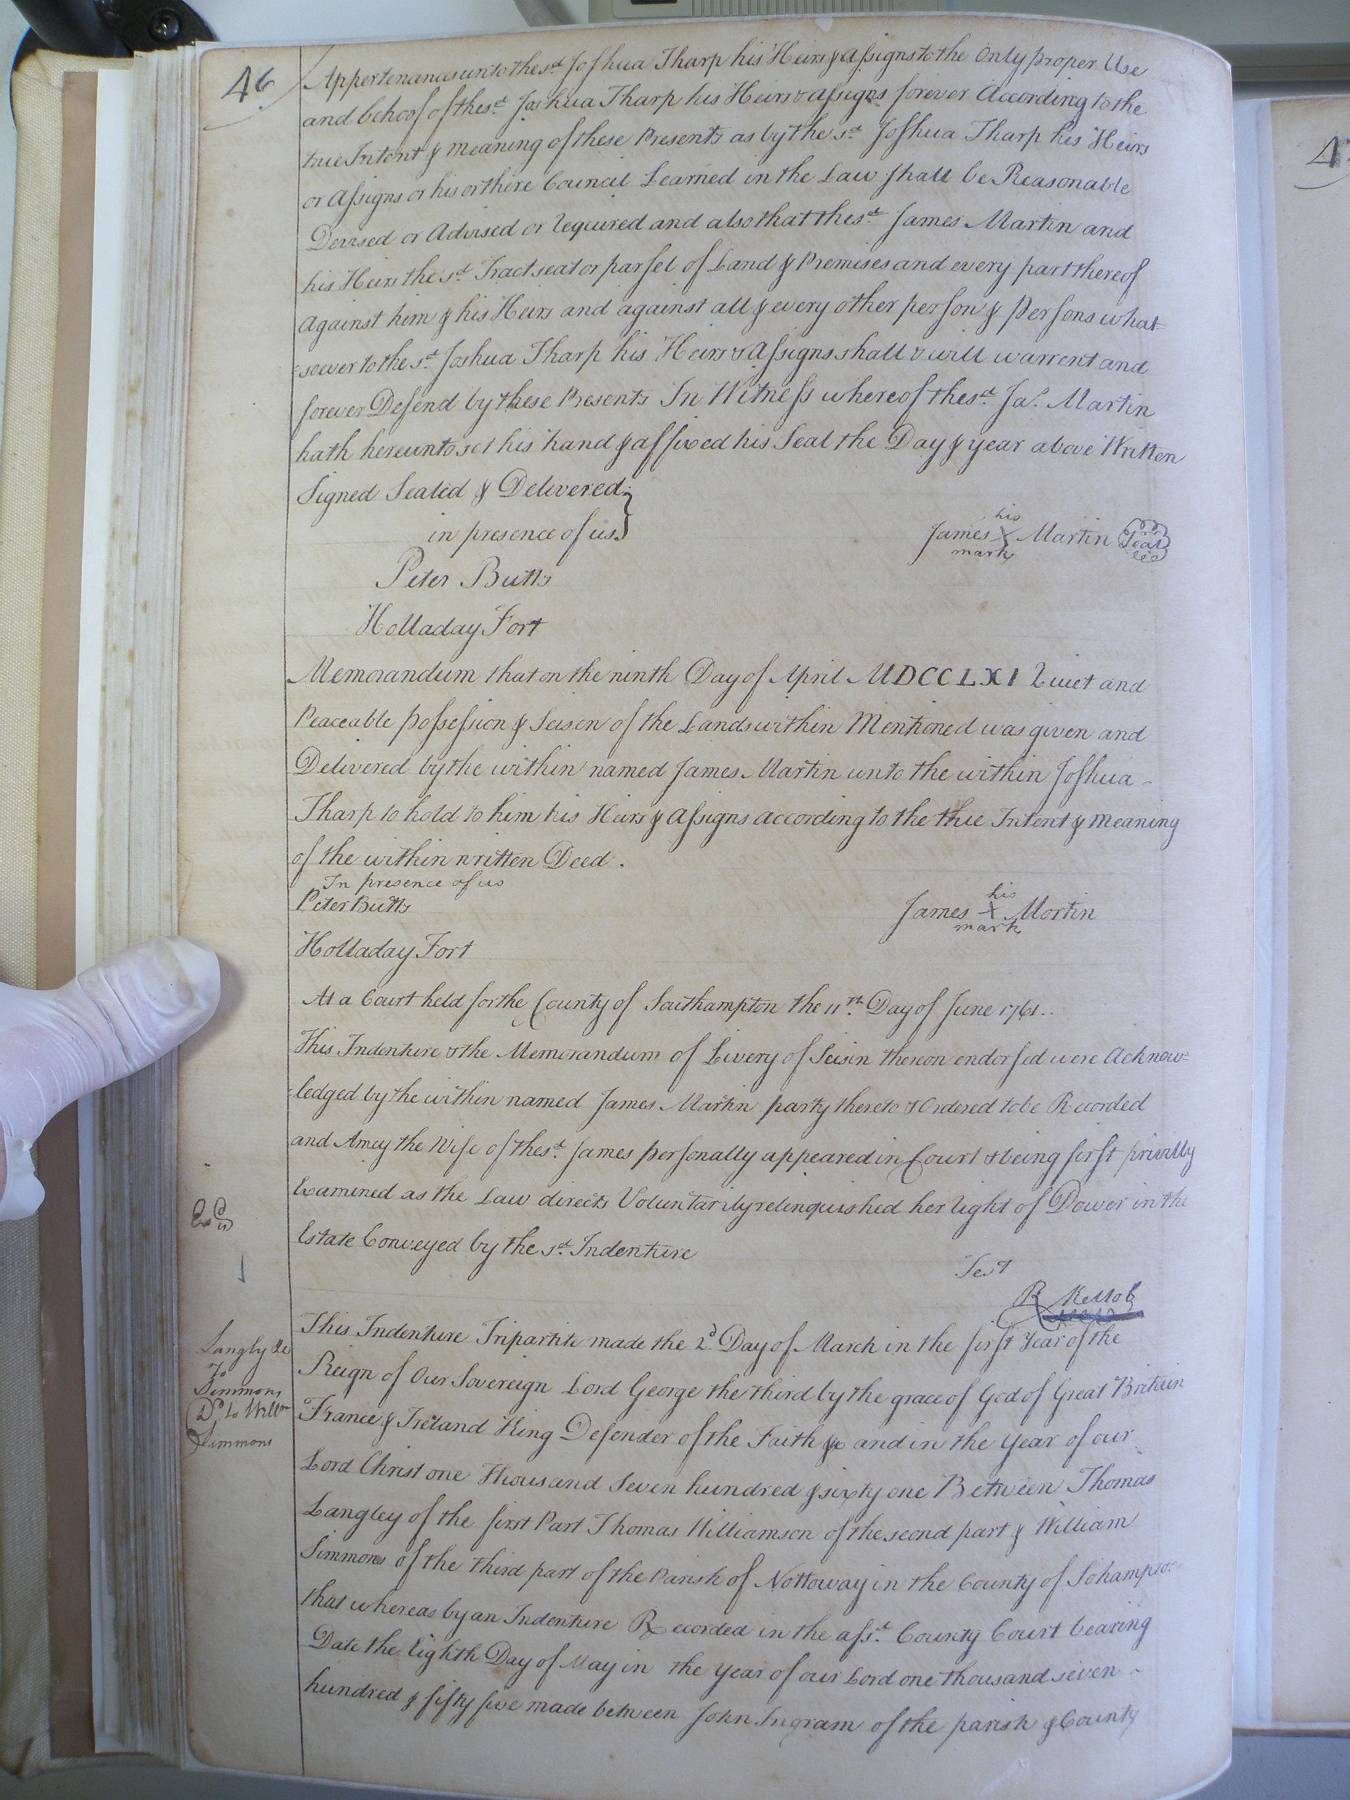 46
Appertenances unto the sd. Joshua Tharp his Heirs & Assigns to the Only proper Use
and behoof of the sd. Joshua Tharp his Heirs & assigns forever According to the
true Intent & meaning of these Presents as by the sd. Joshua Tharp his Heirs
or Assigns or his or there Council Learned in the Law shall be Reasonable
Devised or Advised or required and also that the sd. James Martin and
his Heirs the sd. Tract seat or parsel of Land & Premises and every part thereof
Against him & his Heirs and against all & every other person & Persons what=
=soever to the sd. Joshua Tharp his Heirs & Assigns shall & will warrent and
forever Defend by these Presents In Witness whereof the sd. Jas. Martin
hath hereunto set his hand & affixed his Seal the Day & year above Written
Signed Sealed & Delivered
in presence of us
James his X mark Martin Seal
Peter Butts
Holladay Fort
Memorandum that on the ninth Day of April MDCCLXI Quiet and
Peaceable possession & Seisen of the Lands within Mentioned was given and
Delivered by the within named James Martin unto the within Joshua -
Tharp to hold to him his Heirs & Assigns according to the true Intent & meaning
of the within written Deed.
In presence of us
Peter Butts
James his X mark Martin
Holladay Fort
At a Court held for the County of Southampton the 11th. Day of June 1761..
This Indenture & the Memorandum of Livery of Seisin thereon endorsed were Acknow=
=ledged by the within named James Martin party thereto & Ordered to be Recorded
and Amey the Wife of the sd. James personally appeared in Court & being first privilly
Examined as the Law directs Voluntarily relinquished her right of Dower in the
Estate Conveyed by the sd. Indenture
Test
R Kello C
Langly &c
To
Simmons
Dd. to Willm
Simmons
This Indenture Tripartite made the 2d. Day of March in the first Year of the
Reign of Our Sovereign Lord George the third by the grace of God of Great Britain
France & Ireland King Defender of the Faith &c and in the Year of our
Lord Christ one Thousand Seven hundred & sixty one Between Thomas
Langley of the first Part Thomas Williamson of the second part & William
Simmons of the third part of the Parish of Nottoway in the County of Sohampton
that whereas by an Indenture Recorded in the afsd. County Court bearing
Date the Eighth Day of May in the year of our Lord one thousand seven -
hundred & fifty five made between John Ingram of the parish & County